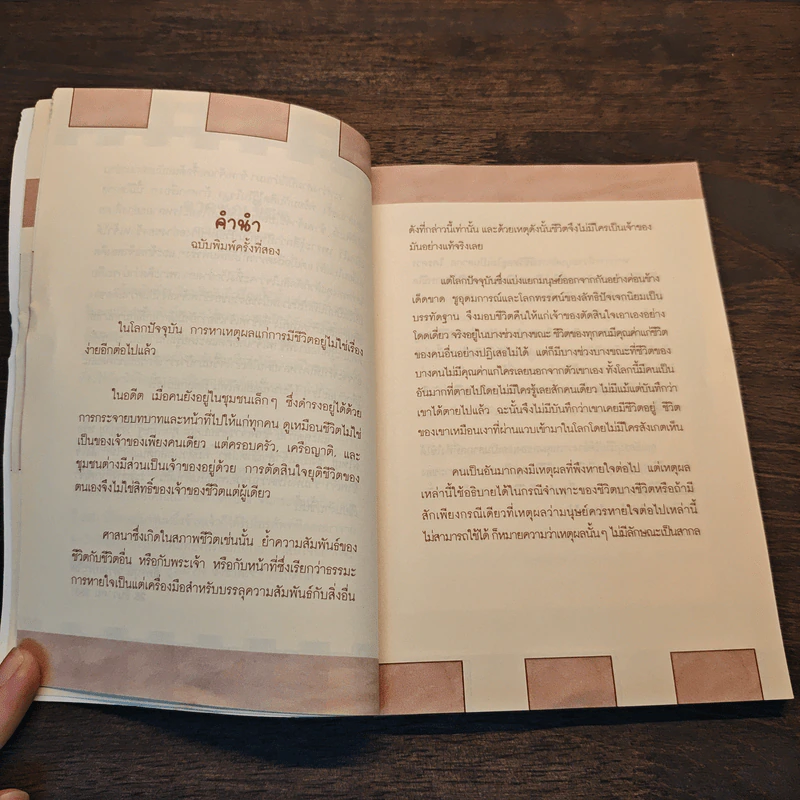 คำนำ
ฉบับพิมพ์ครั้งที่สอง
ในโลกปัจจุบัน การหาเหตุผลแก่การมีชีวิตอยู่ไม่ใช่เรื่อง
ง่ายอีกต่อไปแล้ว
ในอดีต เมื่อคนยังอยู่ในชุมชนเล็กๆ ซึ่งดำรงอยู่ได้ด้วย
การกระจายบทบาทและหน้าที่ไปให้แก่ทุกคน ดูเหมือนชีวิตไม่ใช่
เป็นของเจ้าของเพียงคนเดียว แต่ครอบครัว, เครือญาติ, และ
ชุมชนต่างมีส่วนเป็นเจ้าของอยู่ด้วย การตัดสินใจยุติชีวิตของ
ตนเองจึงไม่ใช่สิทธิ์ของเจ้าของชีวิตแต่ผู้เดียว
ศาสนาซึ่งเกิดในสภาพชีวิตเช่นนั้น ย้ำความสัมพันธ์ของ
ชีวิตกับชีวิตอื่น หรือกับพระเจ้า หรือกับหน้าที่ซึ่งเรียกว่าธรรมะ
การหายใจเป็นแต่เครื่องมือสำหรับบรรลุความสัมพันธ์กับสิ่งอื่น
ดังที่กล่าวนี้เท่านั้น และด้วยเหตุดังนั้นชีวิตจึงไม่มีใครเป็นเจ้าของ
มันอย่างแท้จริงเลย
แต่โลกปัจจุบันซึ่งแบ่งแยกมนุษย์ออกจากกันอย่างค่อนข้าง
เด็ดขาด ชูอุดมการณ์และโลกทรรศน์ของลัทธิปัจเจกนิยมเป็น
บรรทัดฐาน จึงมอบชีวิตคืนให้แก่เจ้าของตัดสินใจเอาเองอย่าง
โดดเดี่ยว จริงอยู่ในบางช่วงบางขณะ ชีวิตของทุกคนมีคุณค่าแก่ชีวิต
ของคนอื่นอย่างปฏิเสธไม่ได้ แต่ก็มีบางช่วงบางขณะที่ชีวิตของ
บางคนไม่มีคุณค่าแก่ใครเลยนอกจากตัวเขาเอง ทั้งโลกนี้มีคนเป็น
อันมากที่ตายไปโดยไม่มีใครรู้เลยสักคนเดียว ไม่มีแม้แต่บันทึกว่า
เขาได้ตายไปแล้ว ฉะนั้นจึงไม่มีบันทึกว่าเขาเคยมีชีวิตอยู่ ชีวิต
ของเขาเหมือนเงาที่ผ่านแวบเข้ามาในโลกโดยไม่มีใครสังเกตเห็น
คนเป็นอันมากคงมีเหตุผลที่พึงหายใจต่อไป แต่เหตุผล
เหล่านี้ใช้อธิบายได้ในกรณีจำเพาะของชีวิตบางชีวิตหรือถ้ามี
สักเพียงกรณีเดียวที่เหตุผลว่ามนุษย์ควรหายใจต่อไปเหล่านี้
ไม่สามารถใช้ได้ ก็หมายความว่าเหตุผลนั้นๆ ไม่มีลักษณะเป็นสากล